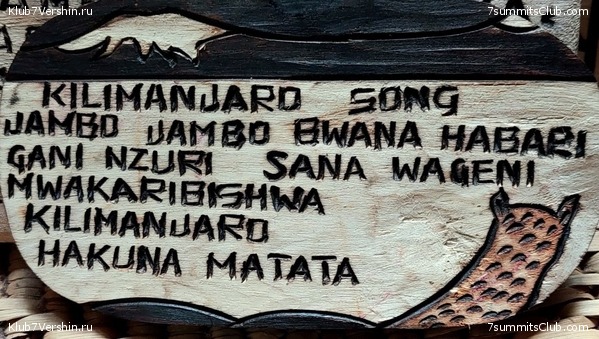 Klub7Vershin.ru 7summitsClub.com
KILIMANJARO SONG
JAMBO JAMBO BWANA HABARI
GANI NZURI SANA WAGENI
MWAKARIBISHWA
KILIMANJARO
HAKUNA MATATA
Klub7Vershin.ru 7summitsClub.com